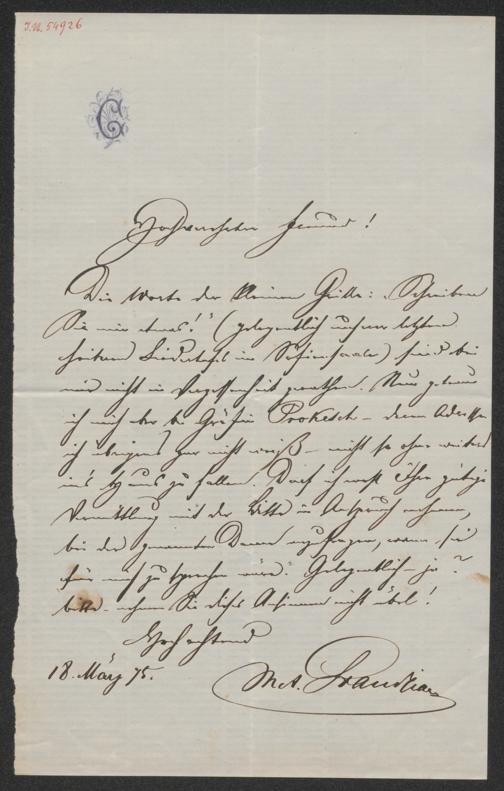 I.N. 54926
C
Hochverehrter Freund!
Die Worte der kleinen Grille: „Schreiben
Sie mir etwas!" (gelegentlich unserer letzten
heitern Liedertafel im Sofiensaale) sind bei
mir nicht in Vergessenheit gerathen. Nun getraue
ich mich aber bei Gräfin Prokesch – deren Adresse
ich übrigens gar nicht weiß – nicht so ohne weiters
in's Haus zu fallen. Darf ich wohl Ihre gütige
Vermittlung mit der Bitte in Anspruch nehmen,
bei der genannten Dame anzufragen, wann sie
für mich zu sprechen wäre? Gelegentlich – ja?
bitte – nehmen Sie dieses Ansinnen nicht übel!
Hochachtend
18. März 75.